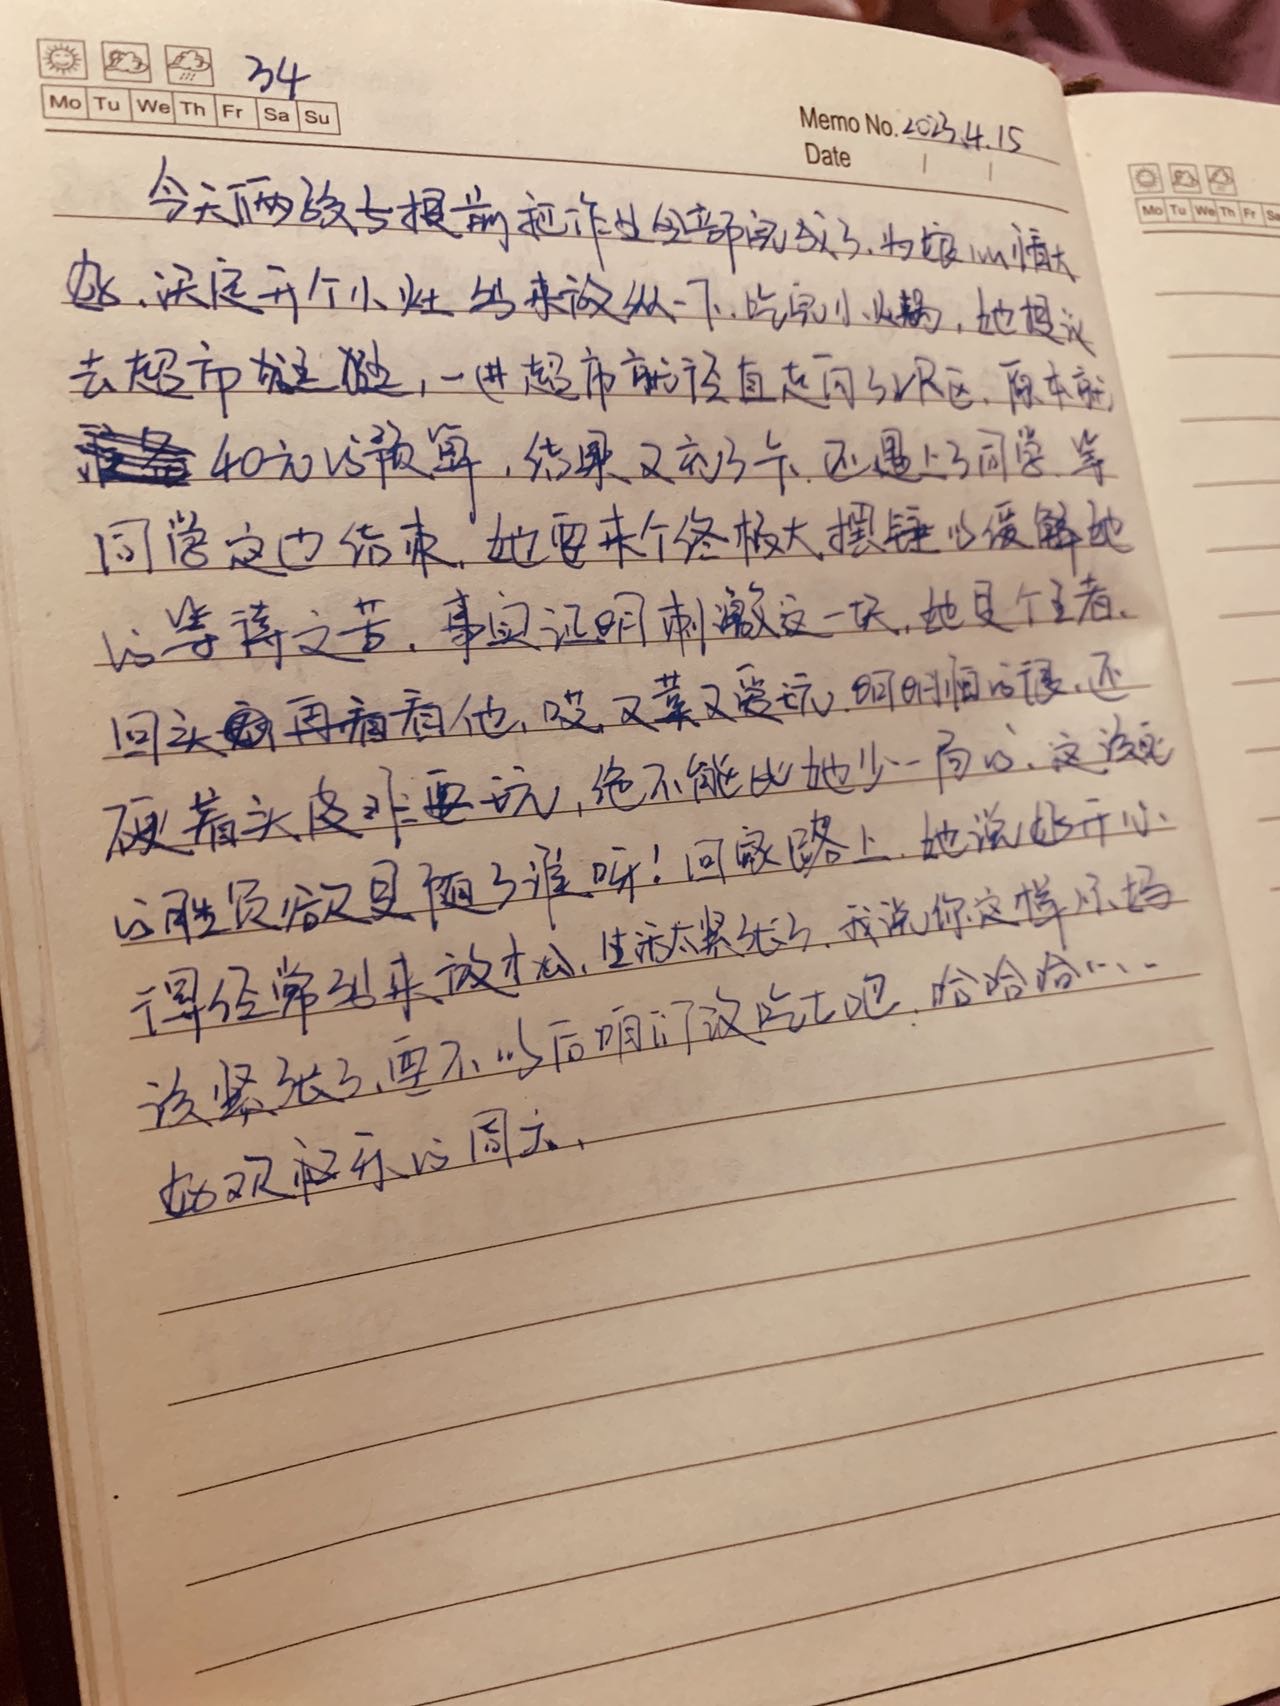 34
Mo Tu We Th Fr Sa Su
Memo No. 2023.4.15
Date
今天俩孩子提前把作业全部完成了.为娘心情大
好.决定开个小灶出来放纵一下.吃完小火锅,她提议
去超市逛逛,一进超市就径直走向了VR区.原本就
40元的预算,结果又充了卡.还遇上了同学.等
同学这也结束.她要来个终极大摆锤以缓解她
的等待之苦.事实证明刺激这一块,她是个王者.
回头再看看他,哎,又菜又爱玩.
硬着头皮非要玩,绝不能比她少一局的.这该死
的胜负欲是随了谁呀!回家路上.她说以后开小
得经常出来放松,生活太紧张了.我说你这样你妈
该紧张了,要不以后咱们改吃土吧.哈哈哈……
好欢乐的周六.
Mo Tu We Th Fr Sa